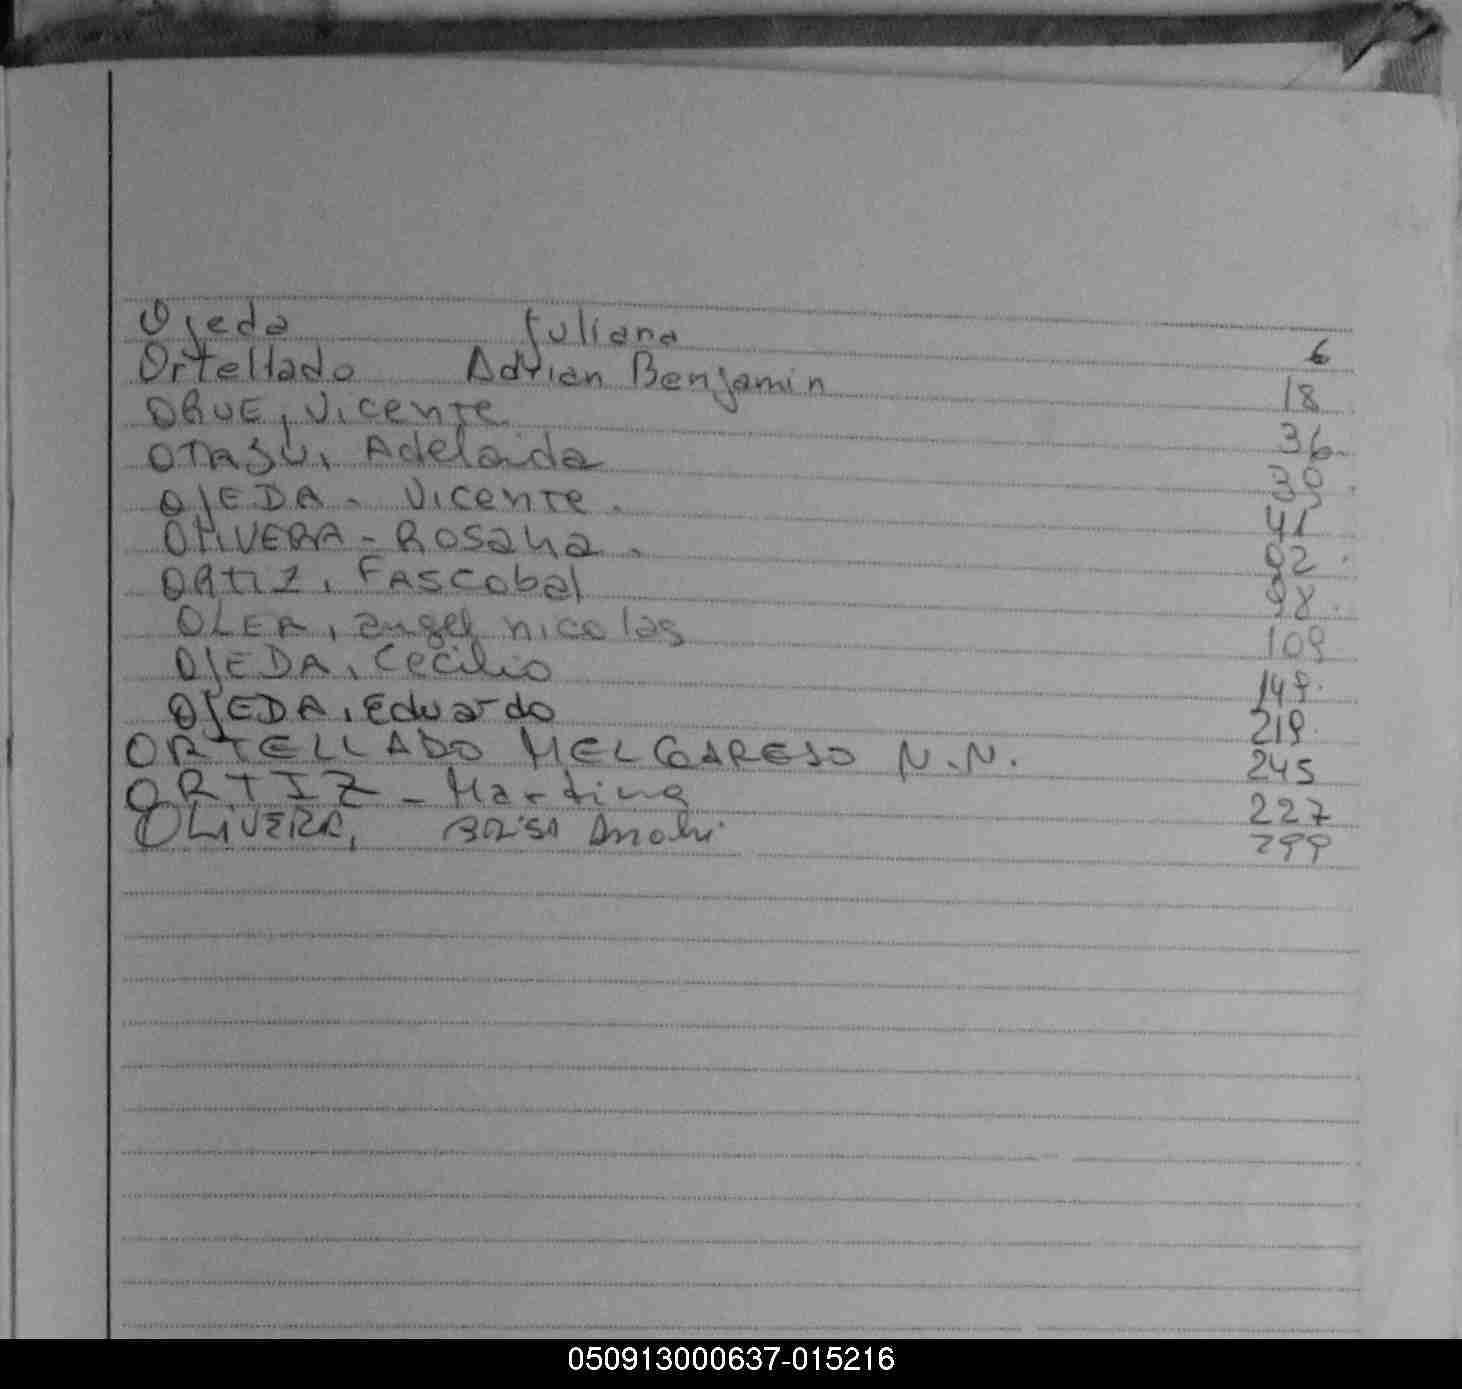 Ojeda Juliana 6
Ortellado Adrian Benjamin 18
ORUE, Vicente 36.
Adelaida 39.
OJEDA - Vicente. 41
OLIVERA - Rosana. 92.
ORTIZ, 98.
OLER, angel nicolas 109
OJEDA, Cecilio 149.
OJEDA, Eduardo 219.
ORTELLADO MELGAREJO N.N. 245
ORTIZ - Martina 227
OLIVERA, Brisa Anahi 299
050913000637-015216